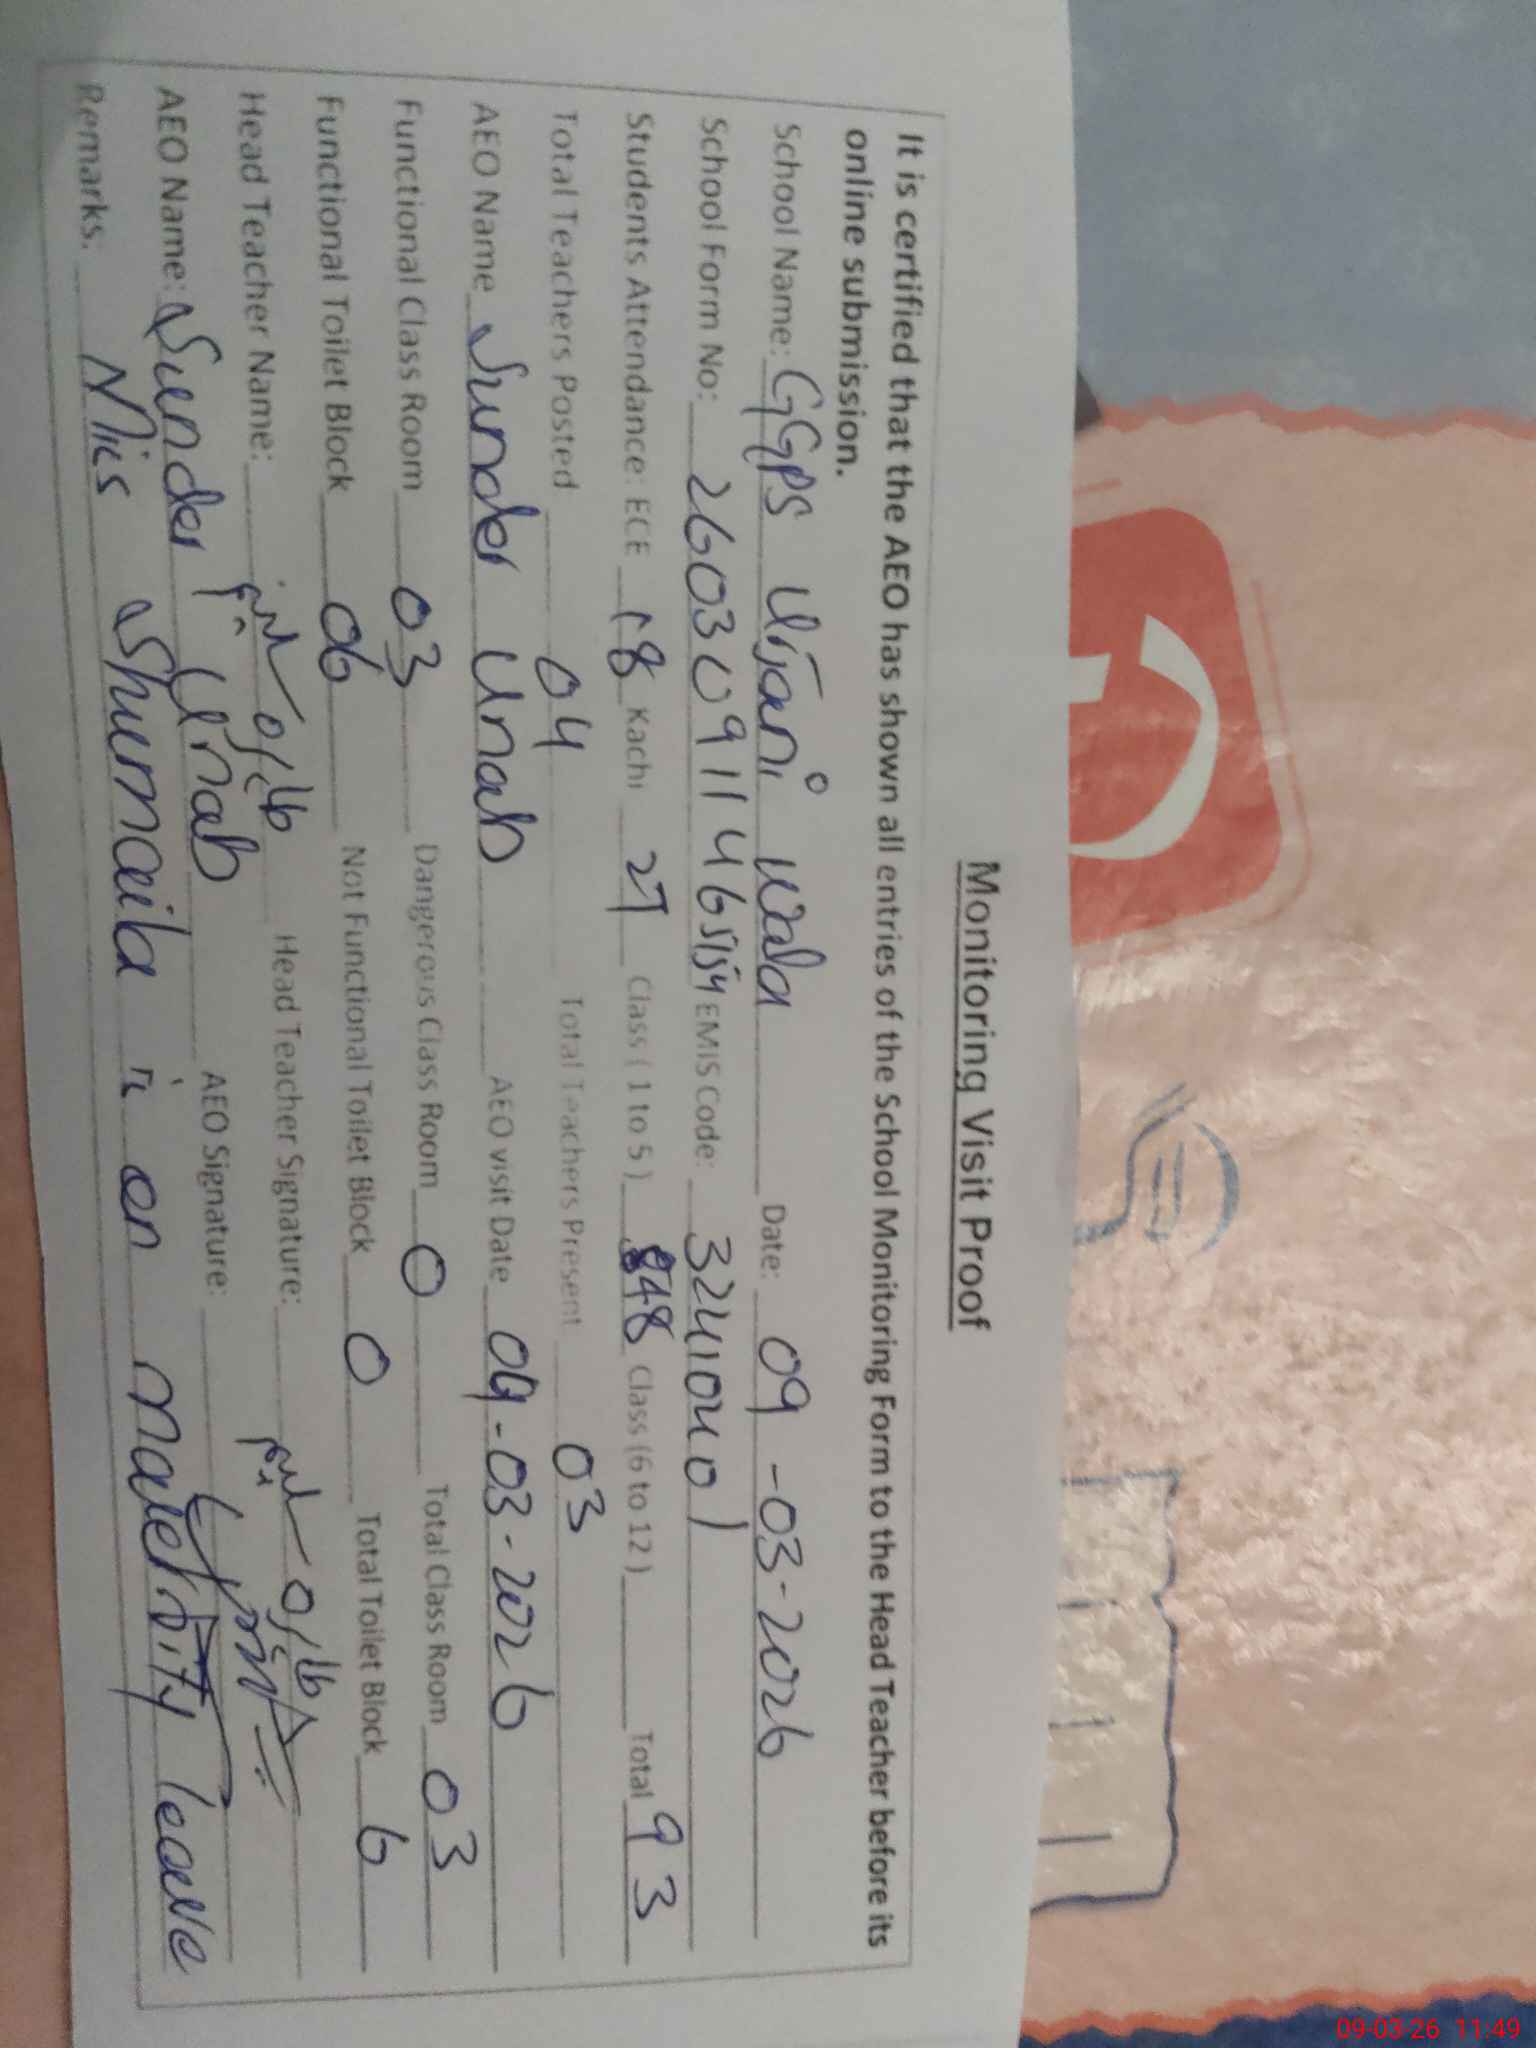 Monitoring Visit Proof
It is certified that the AEO has shown all entries of the School Monitoring Form to the Head Teacher before its
online submission.
School Name: GGPS Ujani wala Date: 09-03-2026
School Form No: EMIS Code: 32410401
Students Attendance: ECE 18 Kachi 27 Class ( 1 to 5 ) 48 Class (6 to 12 ) Total 93
Total Teachers Posted 04 Total Teachers Present 03
AEO Name Sunder Unab AEO visit Date 09-03-2026
Functional Class Room 03 Dangerous Class Room 0 Total Class Room 03
Functional Toilet Block 06 Not Functional Toilet Block 0 Total Toilet Block 6
Head Teacher Name: Head Teacher Signature:
AEO Name: Sunder Unab AEO Signature:
Remarks. Mis Shumaila is on maternity leave
09-03-26 11:49